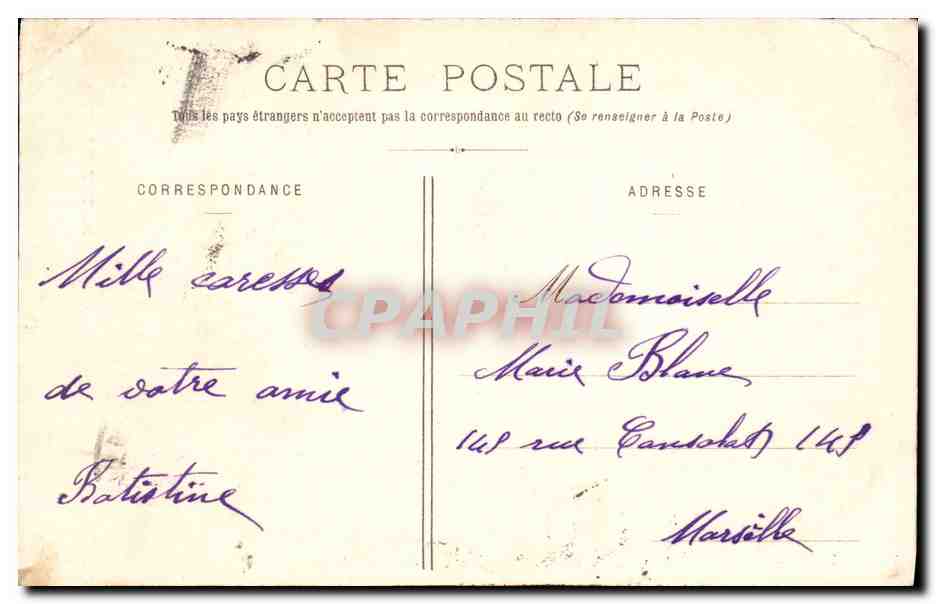 CARTE POSTALE
Tous les pays étrangers n'acceptent pas la correspondance au recto (Se renseigner à la Poste)
CORRESPONDANCE
ADRESSE
Mille caresses
de votre amie
Batistine
Mademoiselle
Marie Blanc
145 rue Consolat 145
Marseille
CPAPHIL